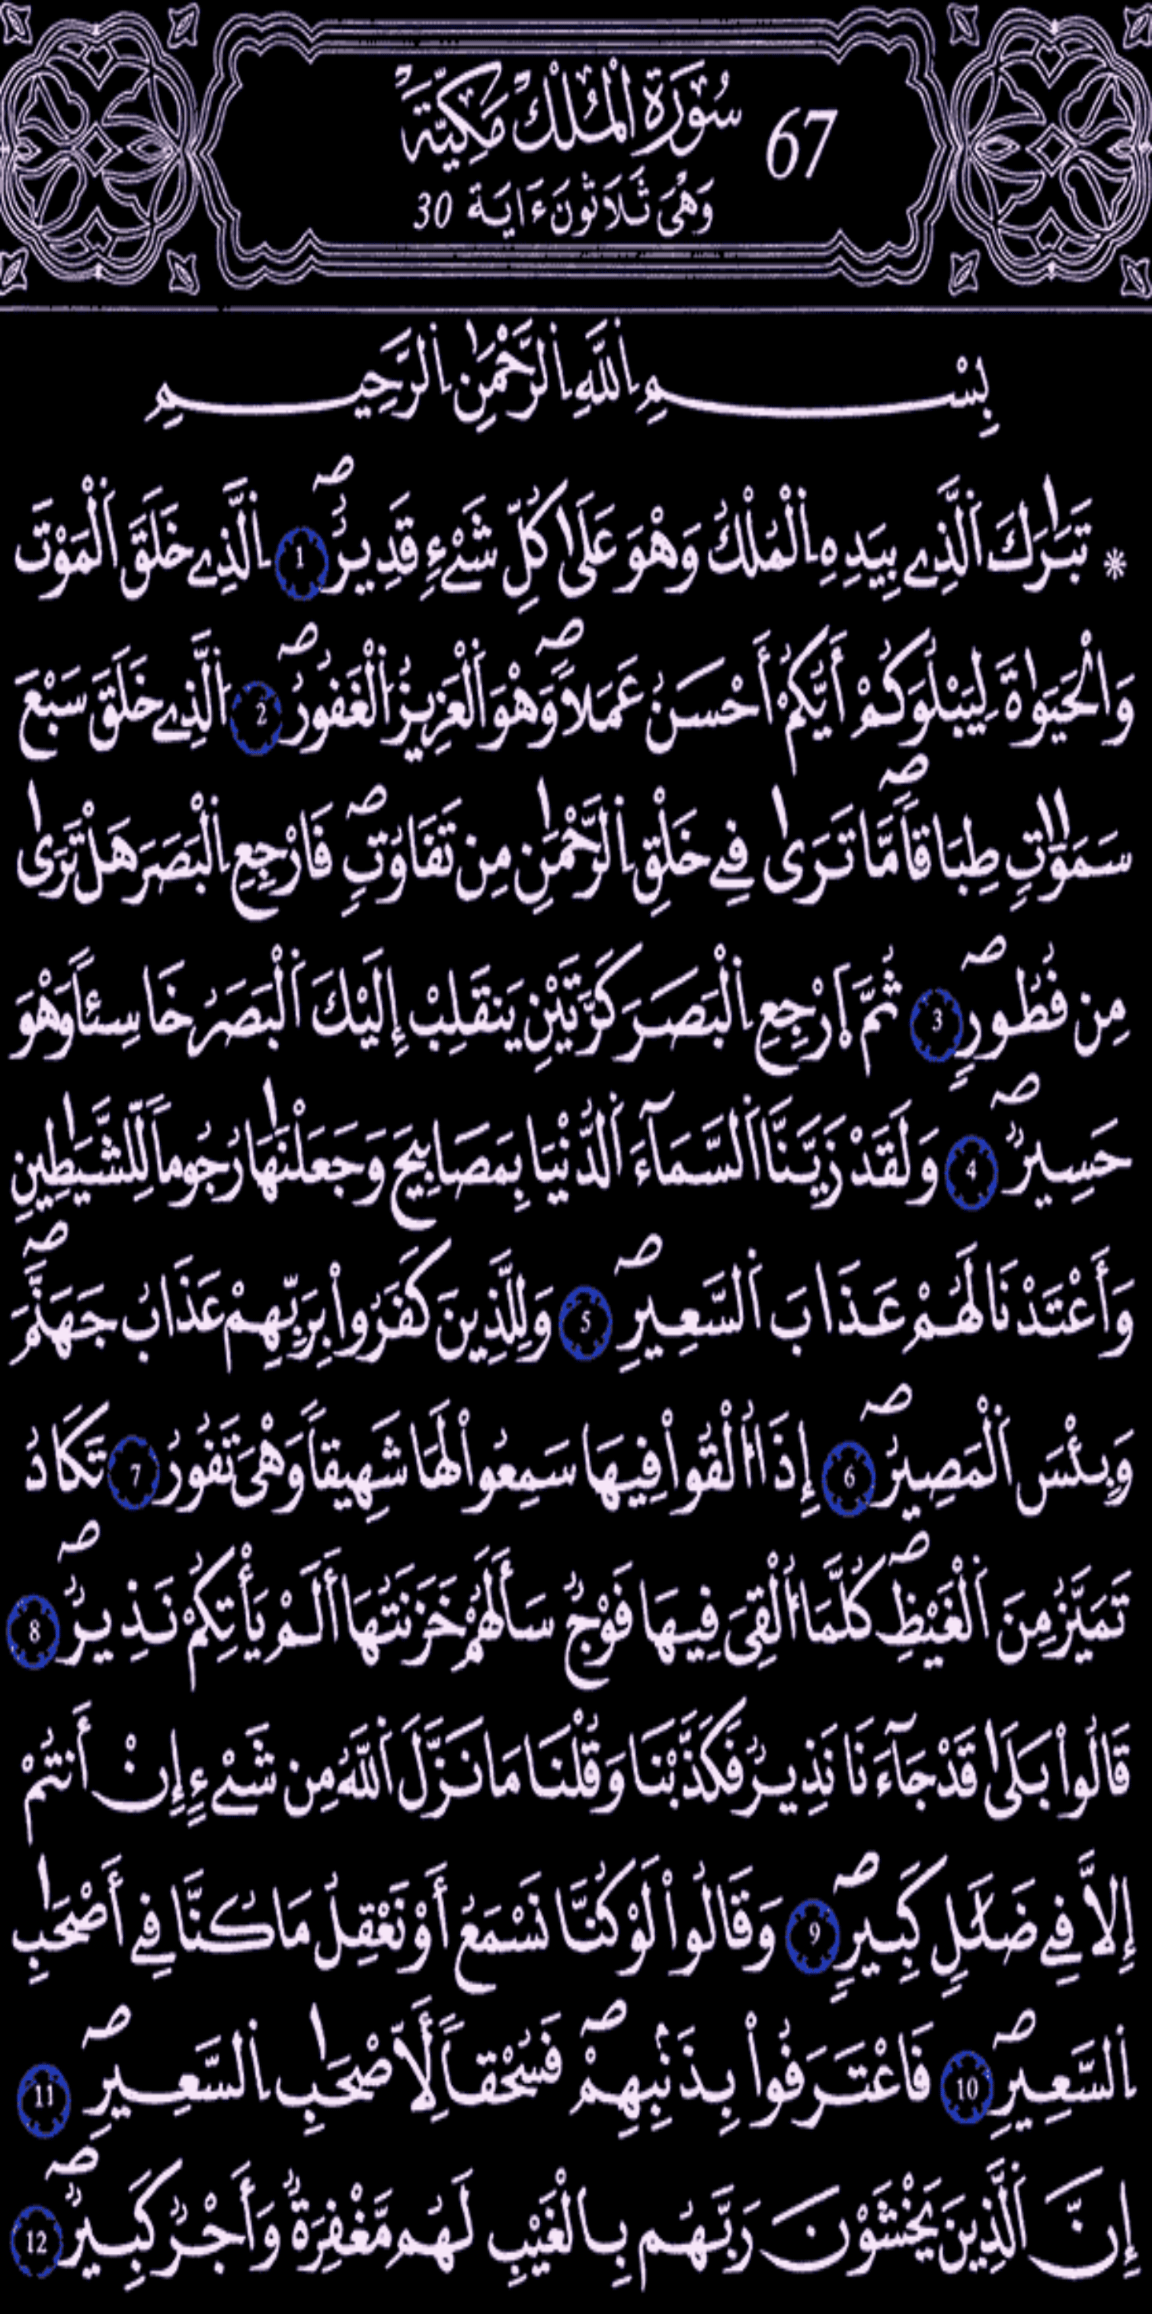 سُورَةُ الْمُلْكِ مَكِّيَّةٌ 67
وَهْيَ ثَلَاثُونَ ءَايَةً 30
بِسْمِ اِ۬للَّهِ اِ۬لرَّحْمَٰنِ اِ۬لرَّحِيمِ
* تَبَٰرَكَ اَ۬لَّذِے بِيَدِهِ اِ۬لْمُلْكُ وَهْوَ عَلَىٰ كُلِّ شَےْءٖ قَدِيرٌۖ 1 اِ۬لَّذِے خَلَقَ اَ۬لْمَوْتَ
وَالْحَيَوٰةَ لِيَبْلُوَكُمْ أَيُّكُمْ أَحْسَنُ عَمَلاٗۖ وَهْوَ اَ۬لْعَزِيزُ اُ۬لْغَفُورُۖ 2 اُ۬لَّذِے خَلَقَ سَبْعَ
سَمَٰوَٰتٖ طِبَاقاٗۖ مَّا تَرَىٰ فِے خَلْقِ اِ۬لرَّحْمَٰنِ مِن تَفَاوُتٖۖ فَارْجِعِ اِ۬لْبَصَرَ هَلْ تَرَىٰ
مِن فُطُورٖۖ 3 ثُمَّ اَ۪رْجِعِ اِ۬لْبَصَرَ كَرَّتَيْنِ يَنقَلِبْ إِلَيْكَ اَ۬لْبَصَرُ خَاسِئاٗ وَهْوَ
حَسِيرٞۖ 4 وَلَقَدْ زَيَّنَّا اَ۬لسَّمَآءَ اَ۬لدُّنْيَا بِمَصَابِيحَ وَجَعَلْنَٰهَا رُجُوماٗ لِّلشَّيَٰطِينِ
وَأَعْتَدْنَا لَهُمْ عَذَابَ اَ۬لسَّعِيرِۖ 5 وَلِلَّذِينَ كَفَرُواْ بِرَبِّهِمْ عَذَابُ جَهَنَّمَۖ
وَبِئْسَ اَ۬لْمَصِيرُۖ 6 إِذَا أُلْقُواْ فِيهَا سَمِعُواْ لَهَا شَهِيقاٗ وَهْيَ تَفُورُ 7 تَكَادُ
تَمَيَّزُ مِنَ اَ۬لْغَيْظِۖ كُلَّمَا أُلْقِيَ فِيهَا فَوْجٞ سَأَلَهُمْ خَزَنَتُهَا أَلَمْ يَأْتِكُمْ نَذِيرٞۖ 8
قَالُواْ بَلَىٰ قَدْ جَآءَنَا نَذِيرٞ فَكَذَّبْنَا وَقُلْنَا مَا نَزَّلَ اَ۬للَّهُ مِن شَےْءٍ إِنْ أَنتُمْ
إِلَّا فِے ضَلَٰلٖ كَبِيرٖۖ 9 وَقَالُواْ لَوْ كُنَّا نَسْمَعُ أَوْ نَعْقِلُ مَا كُنَّا فِے أَصْحَٰبِ
اِ۬لسَّعِيرِۖ 10 فَاعْتَرَفُواْ بِذَنۢبِهِمْۖ فَسُحْقاٗ لِّأَصْحَٰبِ اِ۬لسَّعِيرِۖ 11
إِنَّ اَ۬لَّذِينَ يَخْشَوْنَ رَبَّهُم بِالْغَيْبِ لَهُم مَّغْفِرَةٞ وَأَجْرٞ كَبِيرٞۖ 12